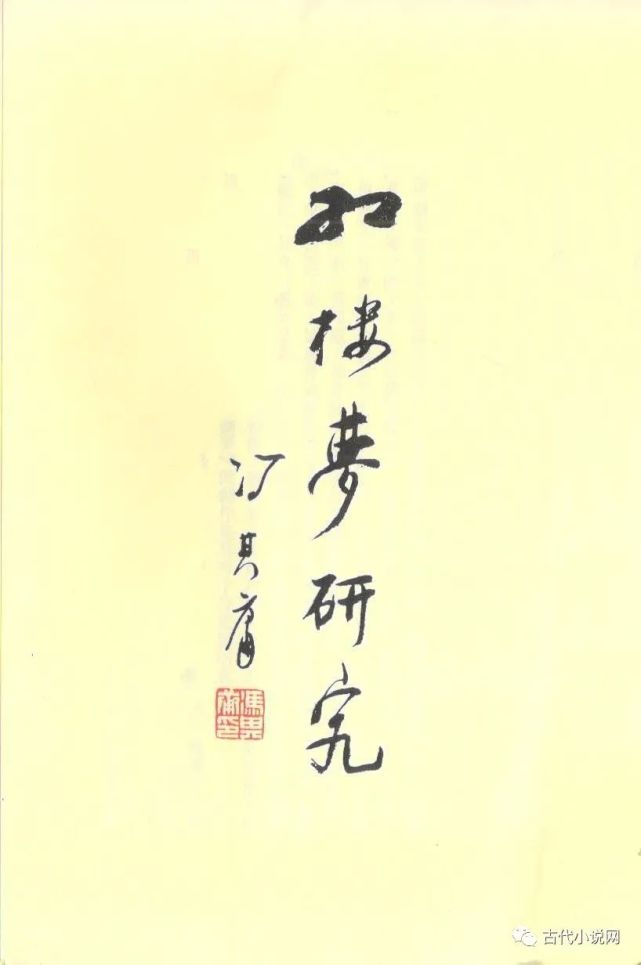 红楼夢研究
冯其庸
馮其庸印
古代小说网